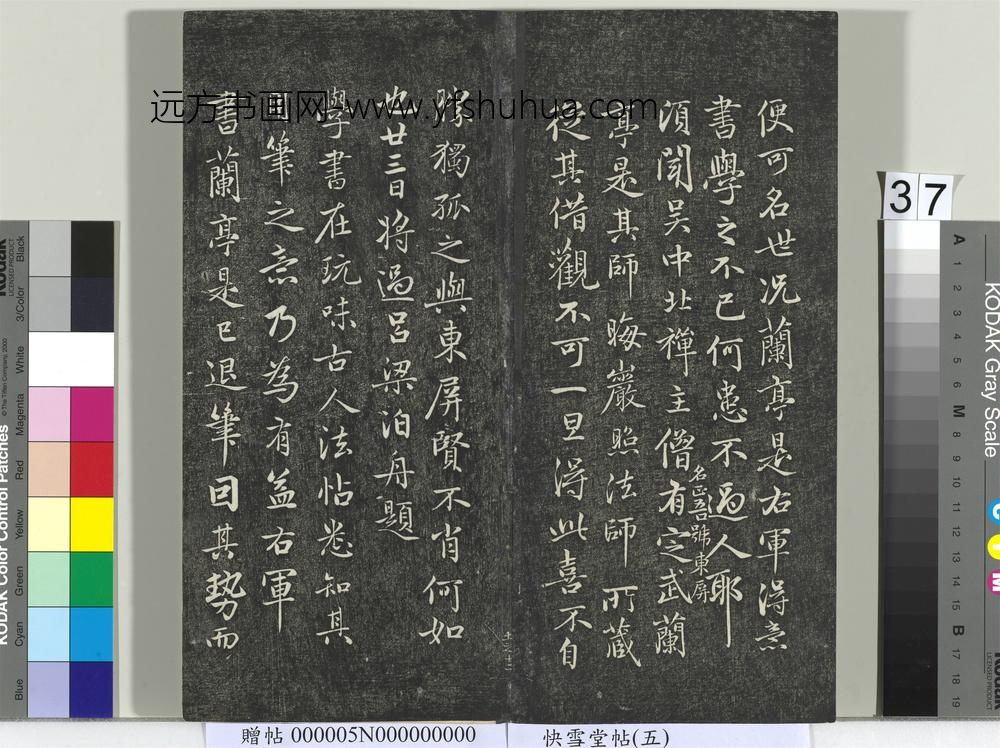 便可名世况蘭亭是右軍得意
書學之不已何患不過人耶
頃聞吴中北禪主僧有定武蘭
名正吾號東屏
亭是其師晦巖照法師所藏
從其借觀不可一旦得此喜不自
勝獨孤之與東屏賢不肖何如
也廿三日將過吕梁泊舟題
學書在玩味古人法帖悉知其
用筆之意乃為有益右軍
書蘭亭是已退筆因其勢而
远方书画网-www.yfshuhua.com
37
KODAK Gray Scale
A 1 2 3 4 5 6 M 8 9 10 11 12 13 14 15 B 17 18 19
C
Y
M
Kodak
LICENSED PRODUCT
KODAK Color Control Patches
© The Tiffen Company, 2000
Blue Cyan Green Yellow Red Magenta White 3/Color Black
贈帖 000005N000000000
快雪堂帖(五)